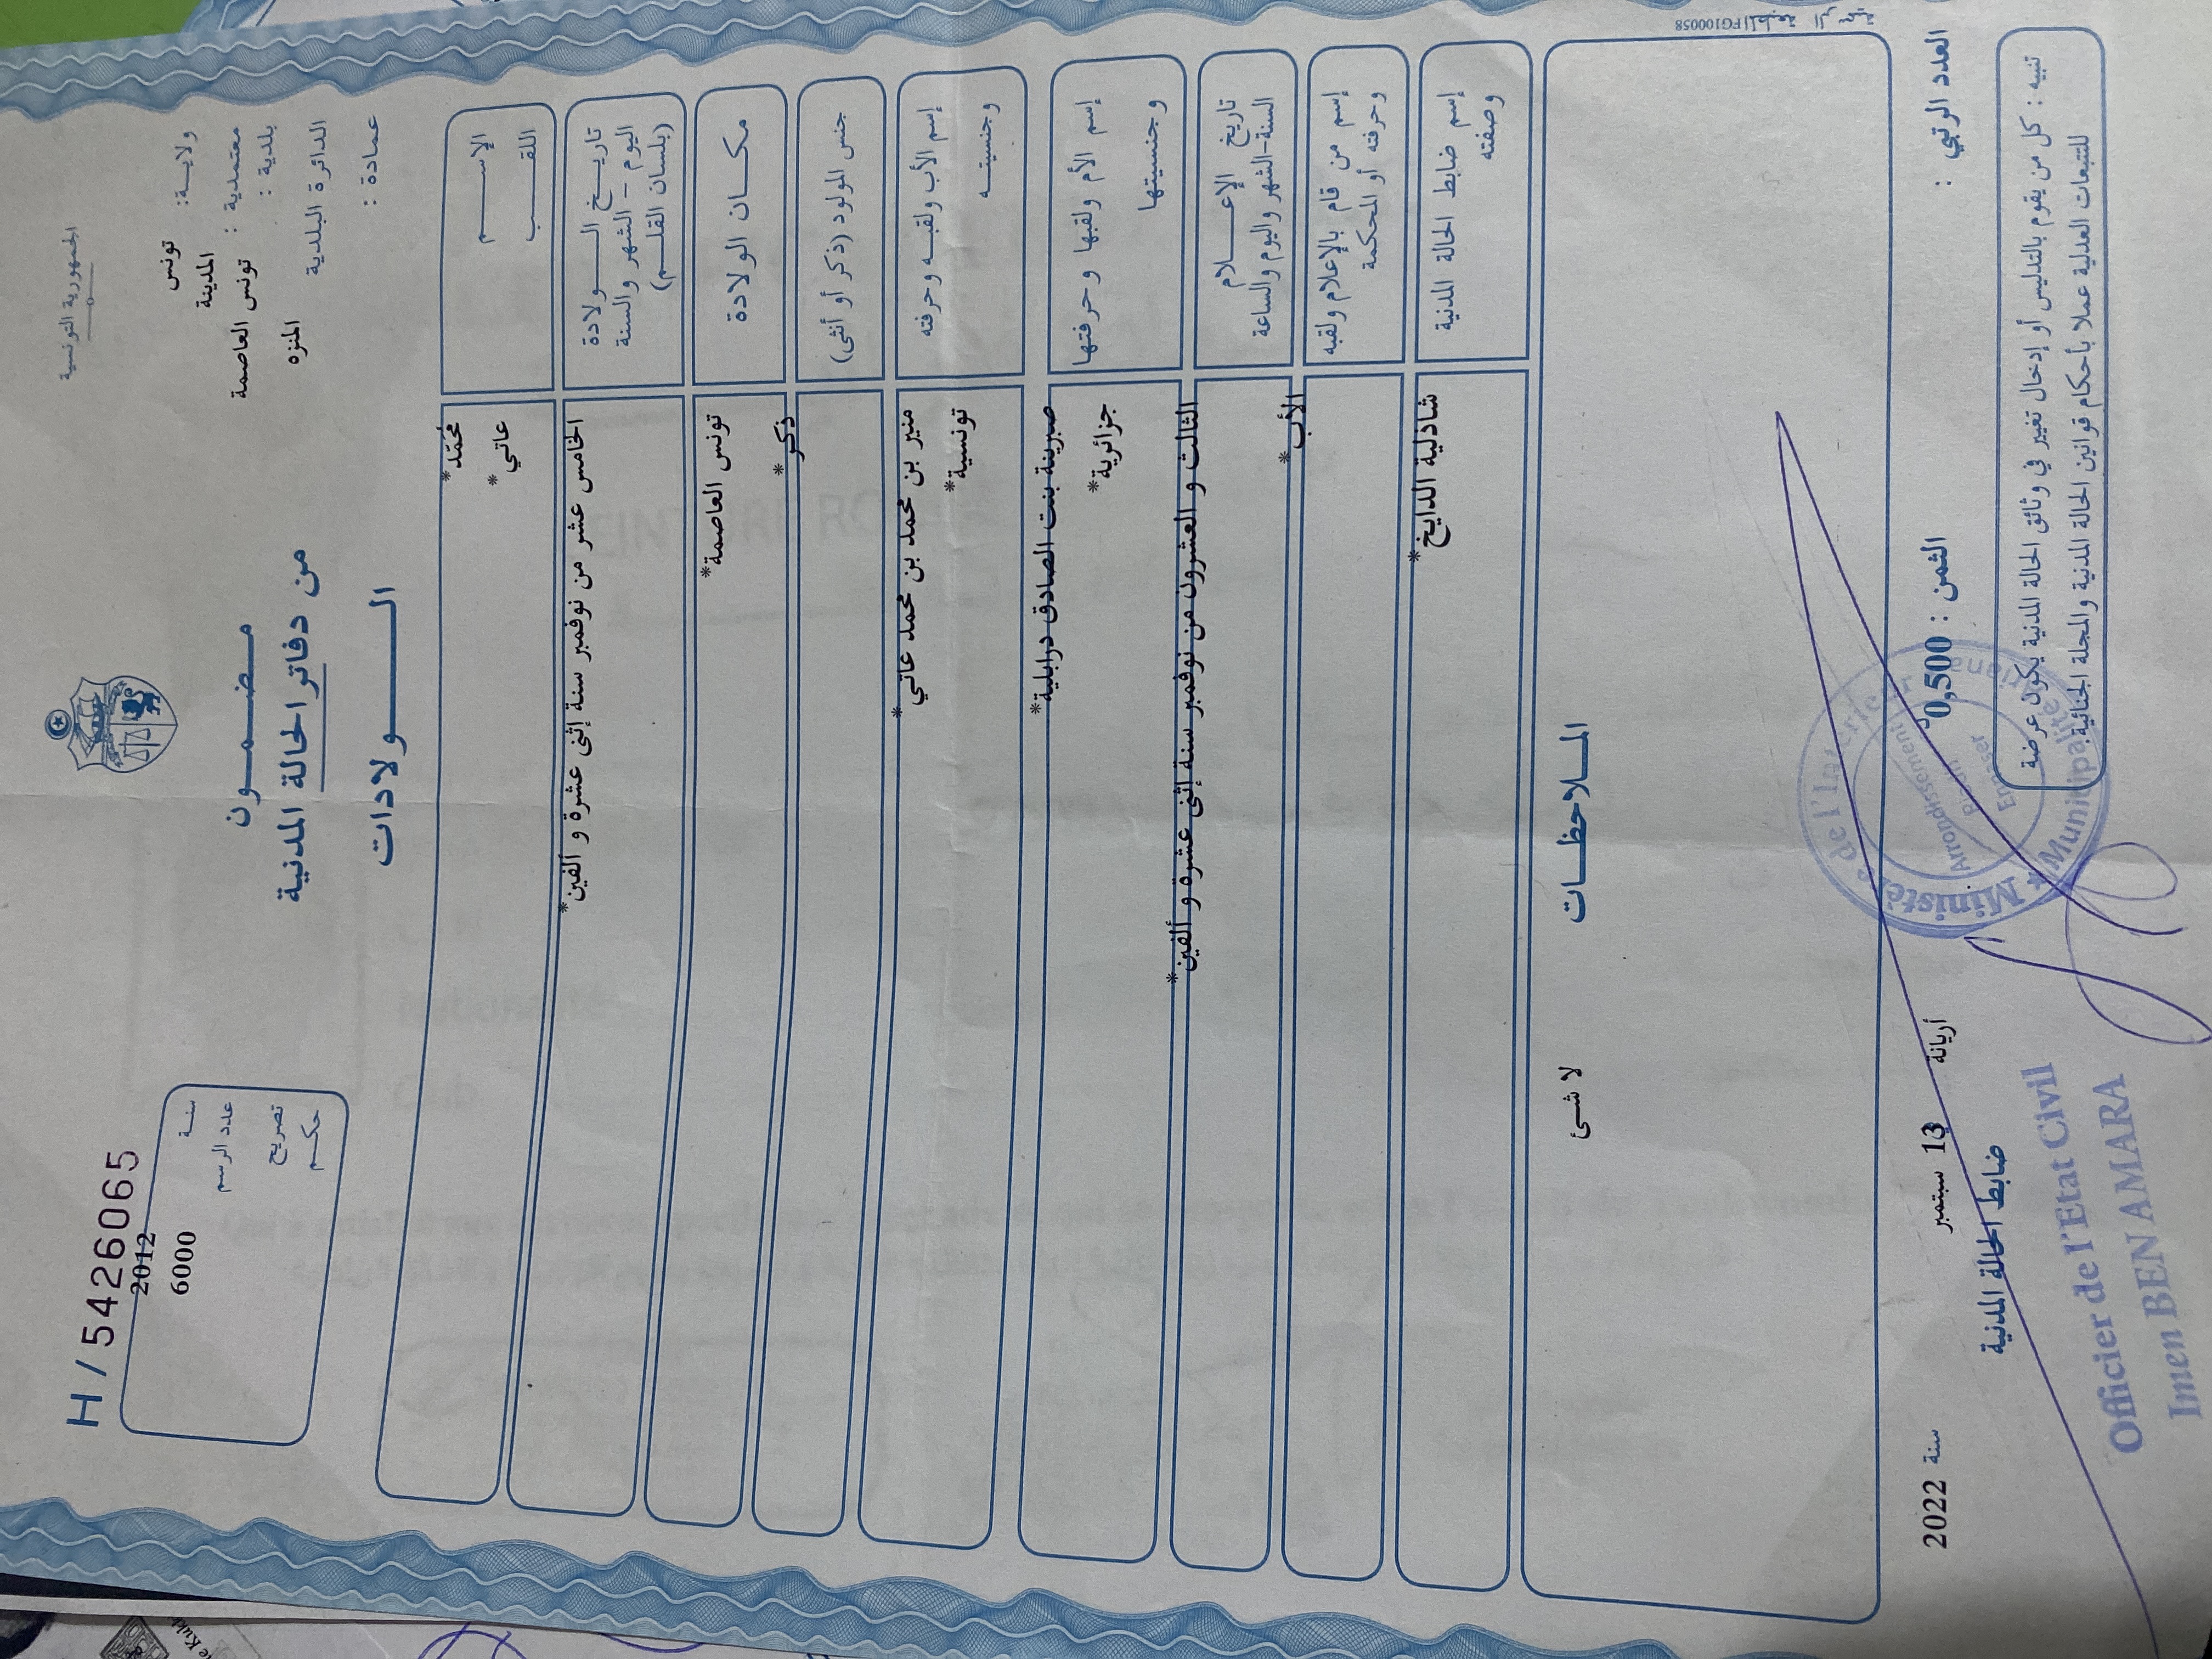 الجمهورية التونسية
H / 5426065
ولايـــة:
تونس
معتمدية :
المدينة
بلدية :
تونس العاصمة
الدائرة البلدية
المنزه
عمادة :
مضمـــون
من دفاتر الحالة المدنية
الـــولادات
سنـــة
2012
عدد الرسم
6000
تصريح
حكـــم
الإســـــم
محمّد*
اللقـــــب
عاتي*
تاريـــخ الـــــولادة
اليوم – الشهر والسنة
(بلسان القلـــم)
الخامس عشر من نوفمبر سنة إثنى عشرة و ألفين*
مكـــان الولادة
تونس العاصمة*
جنس المولود (ذكر أو أنثى)
ذكر*
إسم الأب ولقبـــه وحرفته
وجنسيتـــه
منير بن محمد بن محمد عاتي*
تونسية*
إسم الأم ولقبها وحرفتها
وجنسيتها
صبرينة بنت الصادق درابلية*
جزائرية*
تاريخ الإعـــلام
السنة-الشهر واليوم والساعة
الثالث و العشرون من نوفمبر سنة إثنى عشرة و ألفين*
إسم من قام بالإعلام ولقبه
وحرفته أو المحكمة
الأب*
إسم ضابط الحالة المدنية
وصفته
شاذلية الدايخ*
المـــلاحظـــات
لا شئ
FG100058
العدد الرتبي :
الثمن : 0,500د
أريانة
13 سبتمبر
سنة 2022
ضابط الحالة المدنية
Officier de l'Etat Civil
Imen BEN AMARA
Ministère de l'Intérieur
Municipalité
Arrondissement
Ennasser
تنبيه : كل من يقوم بالتدليس أو إدخال تغيير في وثائق الحالة المدنية يكون عرضة
للتتبعات العدلية عملا بأحكام قوانين الحالة المدنية والمجلة الجنائية.